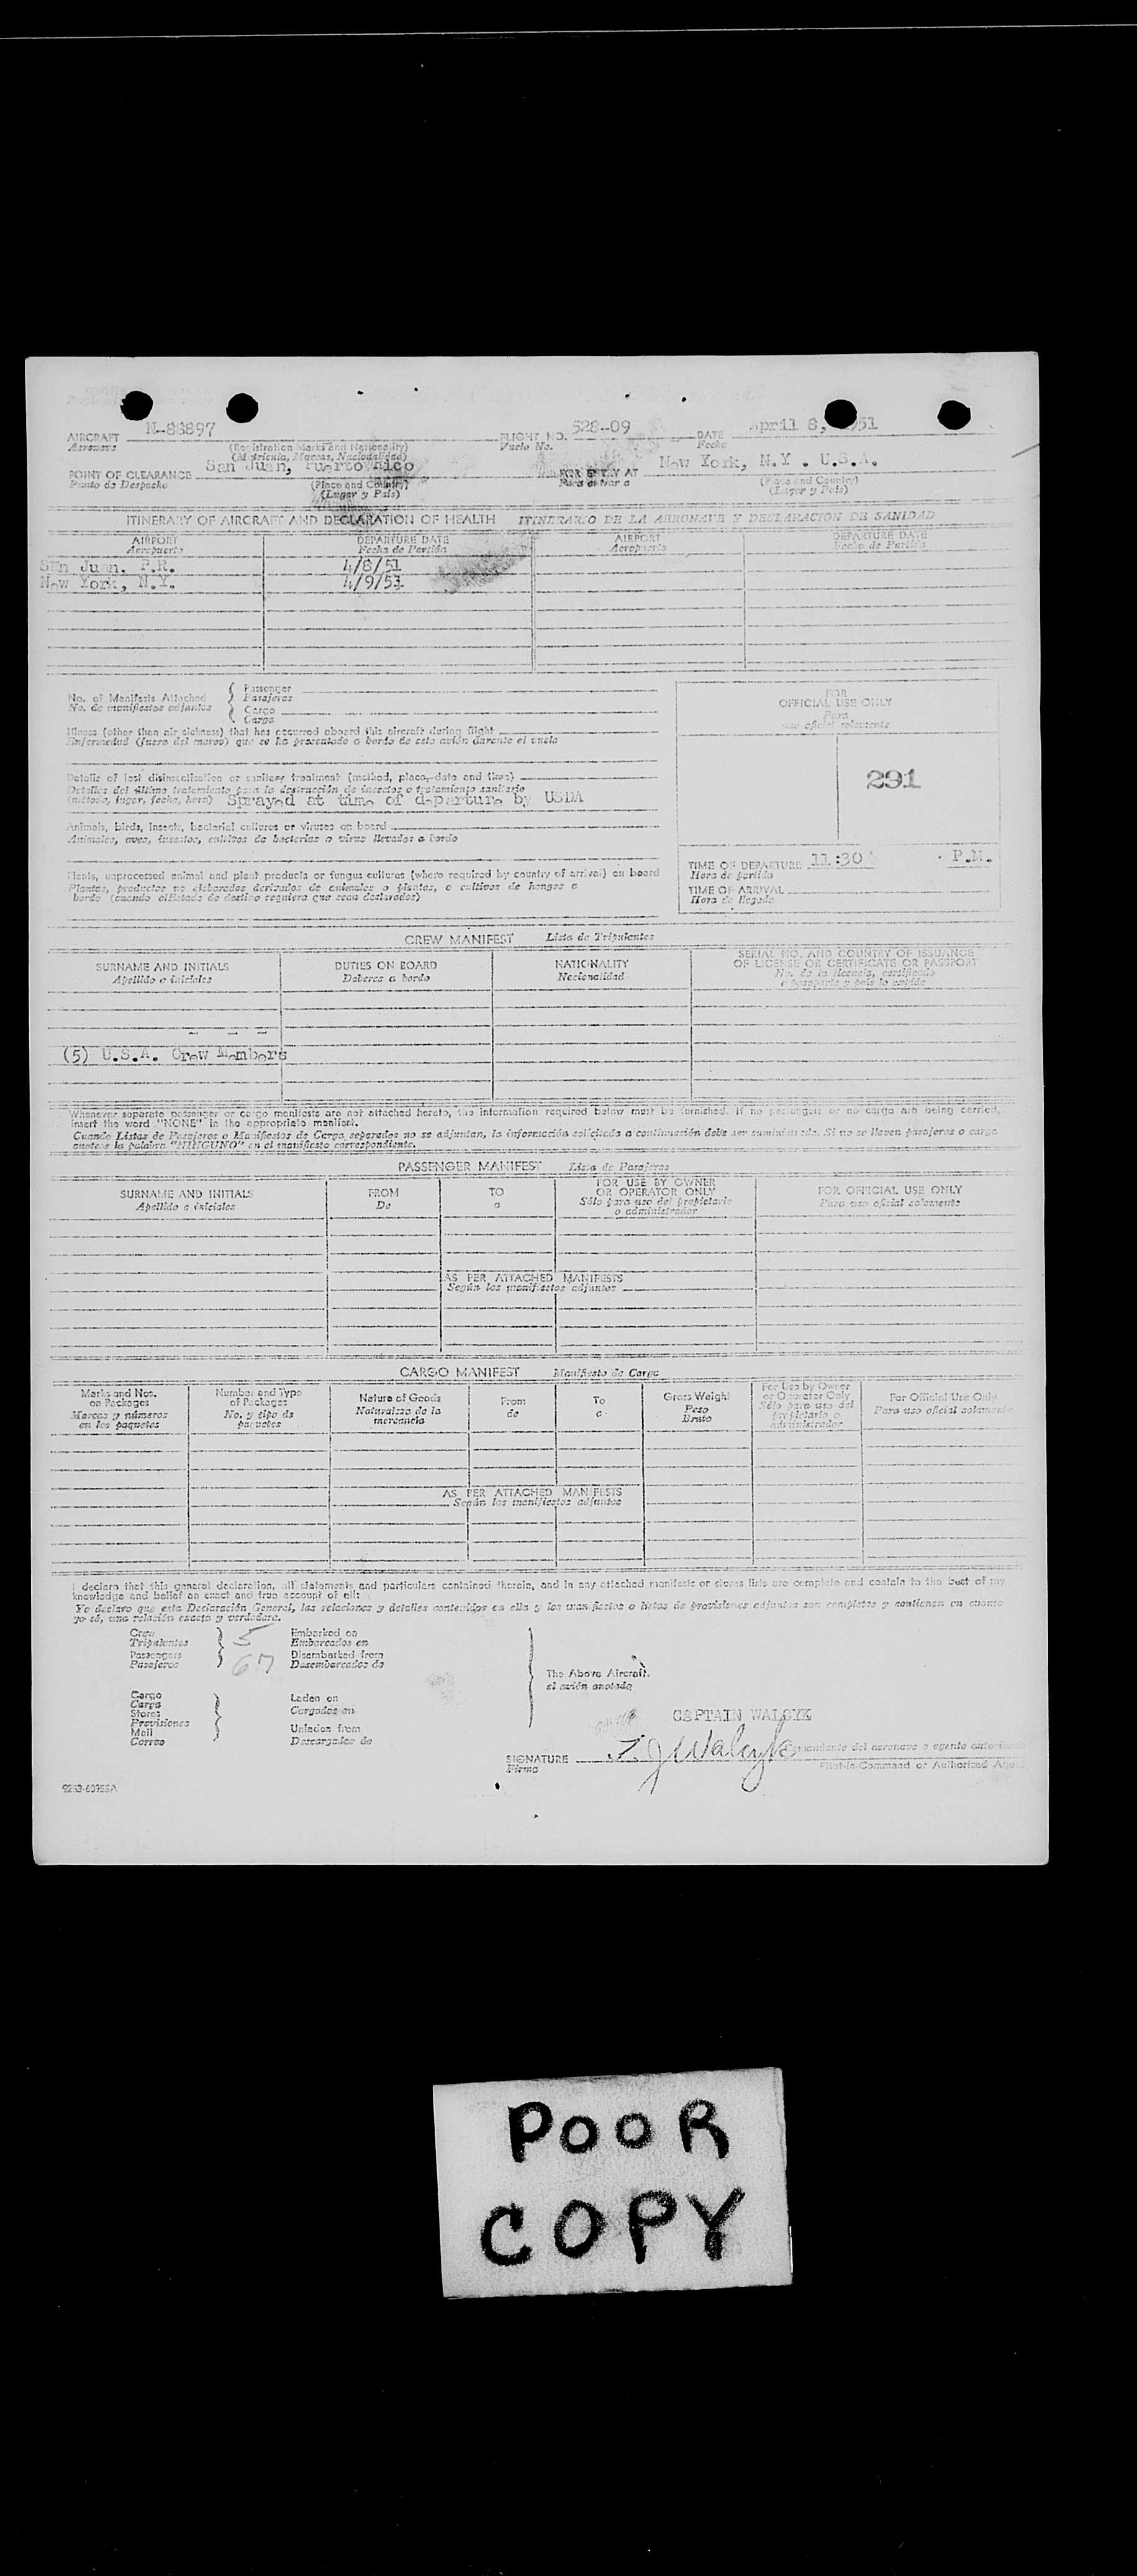 AIRCRAFT N-88897 FLIGHT NO. 528-09 DATE April 8, 1951
Aeronave (Registration Marks and Nationality) Vuelo No. Fecha
(Matrícula, Marcas, Nacionalidad)
POINT OF CLEARANCE San Juan, Puerto Rico FOR ENTRY AT New York, N.Y. U.S.A.
Punto de Despacho (Place and Country) Para entrar a (Place and Country)
(Lugar y País) (Lugar y País)
ITINERARY OF AIRCRAFT AND DECLARATION OF HEALTH ITINERARIO DE LA AERONAVE Y DECLARACION DE SANIDAD
AIRPORT DEPARTURE DATE AIRPORT DEPARTURE DATE
Aeropuerto Fecha de Partida Aeropuerto Fecha de Partida
San Juan. P.R. 4/8/51
New York, N.Y. 4/9/51
No. of Manifests Attached { Passenger
No. de manifiestos adjuntos Pasajeros
Cargo
Carga
FOR
OFFICIAL USE ONLY
Para
uso oficial solamente
Illness (other than air sickness) that has occurred aboard this aircraft during flight
Enfermedad (fuera del mareo) que se ha presentado a bordo de este avión durante el vuelo
291
Details of last disinsectization or sanitary treatment (method, place, date and time)
Detalles del último tratamiento para la destrucción de insectos o tratamiento sanitario
(método, lugar, fecha, hora) Sprayed at time of departure by USDA
Animals, birds, insects, bacterial cultures or viruses on board
Animales, aves, insectos, cultivos de bacterias o virus llevados a bordo
TIME OF DEPARTURE 11:30 P.M.
Hora de partida
TIME OF ARRIVAL
Hora de llegada
Plants, unprocessed animal and plant products or fungus cultures (where required by country of arrival) on board
Plantas, productos no elaborados derivados de animales o plantas, o cultivos de hongos a
bordo (cuando el Estado de destino requiera que sean declarados)
CREW MANIFEST Lista de Tripulantes
SURNAME AND INITIALS DUTIES ON BOARD NATIONALITY SERIAL NO. AND COUNTRY OF ISSUANCE
OF LICENSE OR CERTIFICATE OR PASSPORT
Apellido e iniciales Deberes a bordo Nacionalidad No. de la licencia, certificado
o pasaporte y país lo expide
- - -
(5) U.S.A. Crew Members
Whenever separate passenger or cargo manifests are not attached hereto, the information required below must be furnished. If no passengers or no cargo are being carried,
insert the word "NONE" in the appropriate manifest.
Cuando Listas de Pasajeros o Manifiestos de Carga separados no se adjuntan, la información solicitada a continuación debe ser suministrada. Si no se llevan pasajeros o carga
anotese la palabra "NINGUNO" en el manifiesto correspondiente.
PASSENGER MANIFEST Lista de Pasajeros
SURNAME AND INITIALS FROM TO FOR USE BY OWNER
OR OPERATOR ONLY FOR OFFICIAL USE ONLY
Apellido e iniciales De a Sólo para uso del propietario
o administrador Para uso oficial solamente
AS PER ATTACHED MANIFESTS
Según los manifiestos adjuntos
CARGO MANIFEST Manifiesto de Carga
Marks and Nos.
on Packages
Marcas y números
en los paquetes
Number and Type
of Packages
No. y tipo de
paquetes
Nature of Goods
Naturaleza de la
mercancía
From
de
To
a
Gross Weight
Peso
Bruto
For Use by Owner
or Operator Only
Sólo para uso del
propietario o
administrador
For Official Use Only
Para uso oficial solamente
AS PER ATTACHED MANIFESTS
Según los manifiestos adjuntos
I declare that this general declaration, all statements and particulars contained therein, and in any attached manifests or stores lists are complete and contain to the best of my
knowledge and belief an exact and true account of all:
Yo declaro que esta Declaración General, las relaciones y detalles contenidos en ella y los manifiestos o listas de provisiones adjuntas son completos y contienen en cuanto
yo sé, una relación exacta y verdadera.
Crew
Tripulantes 5
Passengers
Pasajeros 67
Embarked on
Embarcados en
Disembarked from
Desembarcados de
Cargo
Carga
Stores
Provisiones
Mail
Correo
Laden on
Cargados en
Unladen from
Descargados de
The Above Aircraft.
el avión anotado
CAPTAIN WALCYK
SIGNATURE F. J. Walcyk Comandante del aeronave o agente autorizado
Firma Pilot-in-Command or Authorized Agent
POOR
COPY